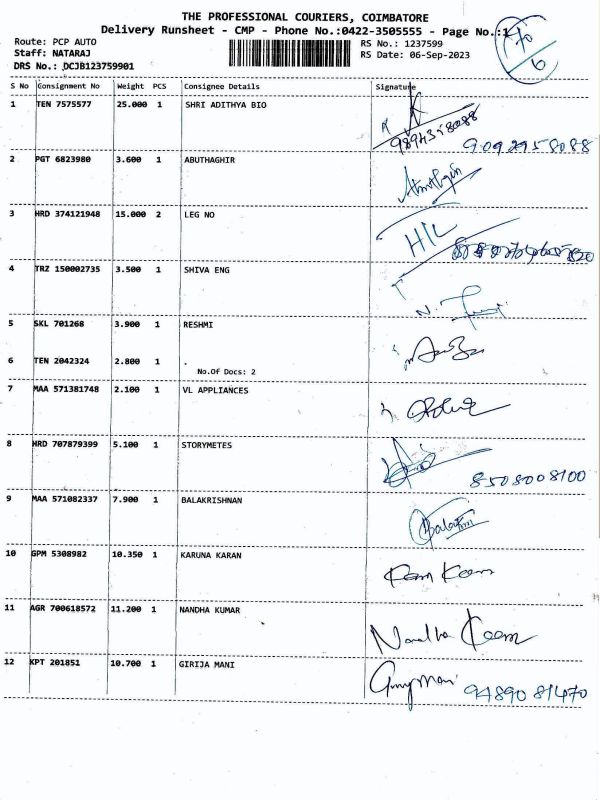 THE PROFESSIONAL COURIERS, COIMBATORE
Delivery Runsheet - CMP - Phone No.:0422-3505555 - Page No.:1
Route: PCP AUTO RS No.: 1237599
Staff: NATARAJ RS Date: 06-Sep-2023
DRS No.: DCJB123759901
S No Consignment No Weight PCS Consignee Details Signature
1 TEN 7575577 25.000 1 SHRI ADITHYA BIO
9894358088 9092958088
2 PGT 6823980 3.600 1 ABUTHAGHIR
3 HRD 374121948 15.000 2 LEG NO
H/L
4 TRZ 150002735 3.500 1 SHIVA ENG
5 SKL 701268 3.900 1 RESHMI
6 TEN 2042324 2.800 1
No.Of Docs: 2
7 MAA 571381748 2.100 1 VL APPLIANCES
8 HRD 707879399 5.100 1 STORYMETES
8508008100
9 MAA 571082337 7.900 1 BALAKRISHNAN
10 GPM 5308982 10.350 1 KARUNA KARAN
11 AGR 700618572 11.200 1 NANDHA KUMAR
12 KPT 201851 10.700 1 GIRIJA MANI
9489081470